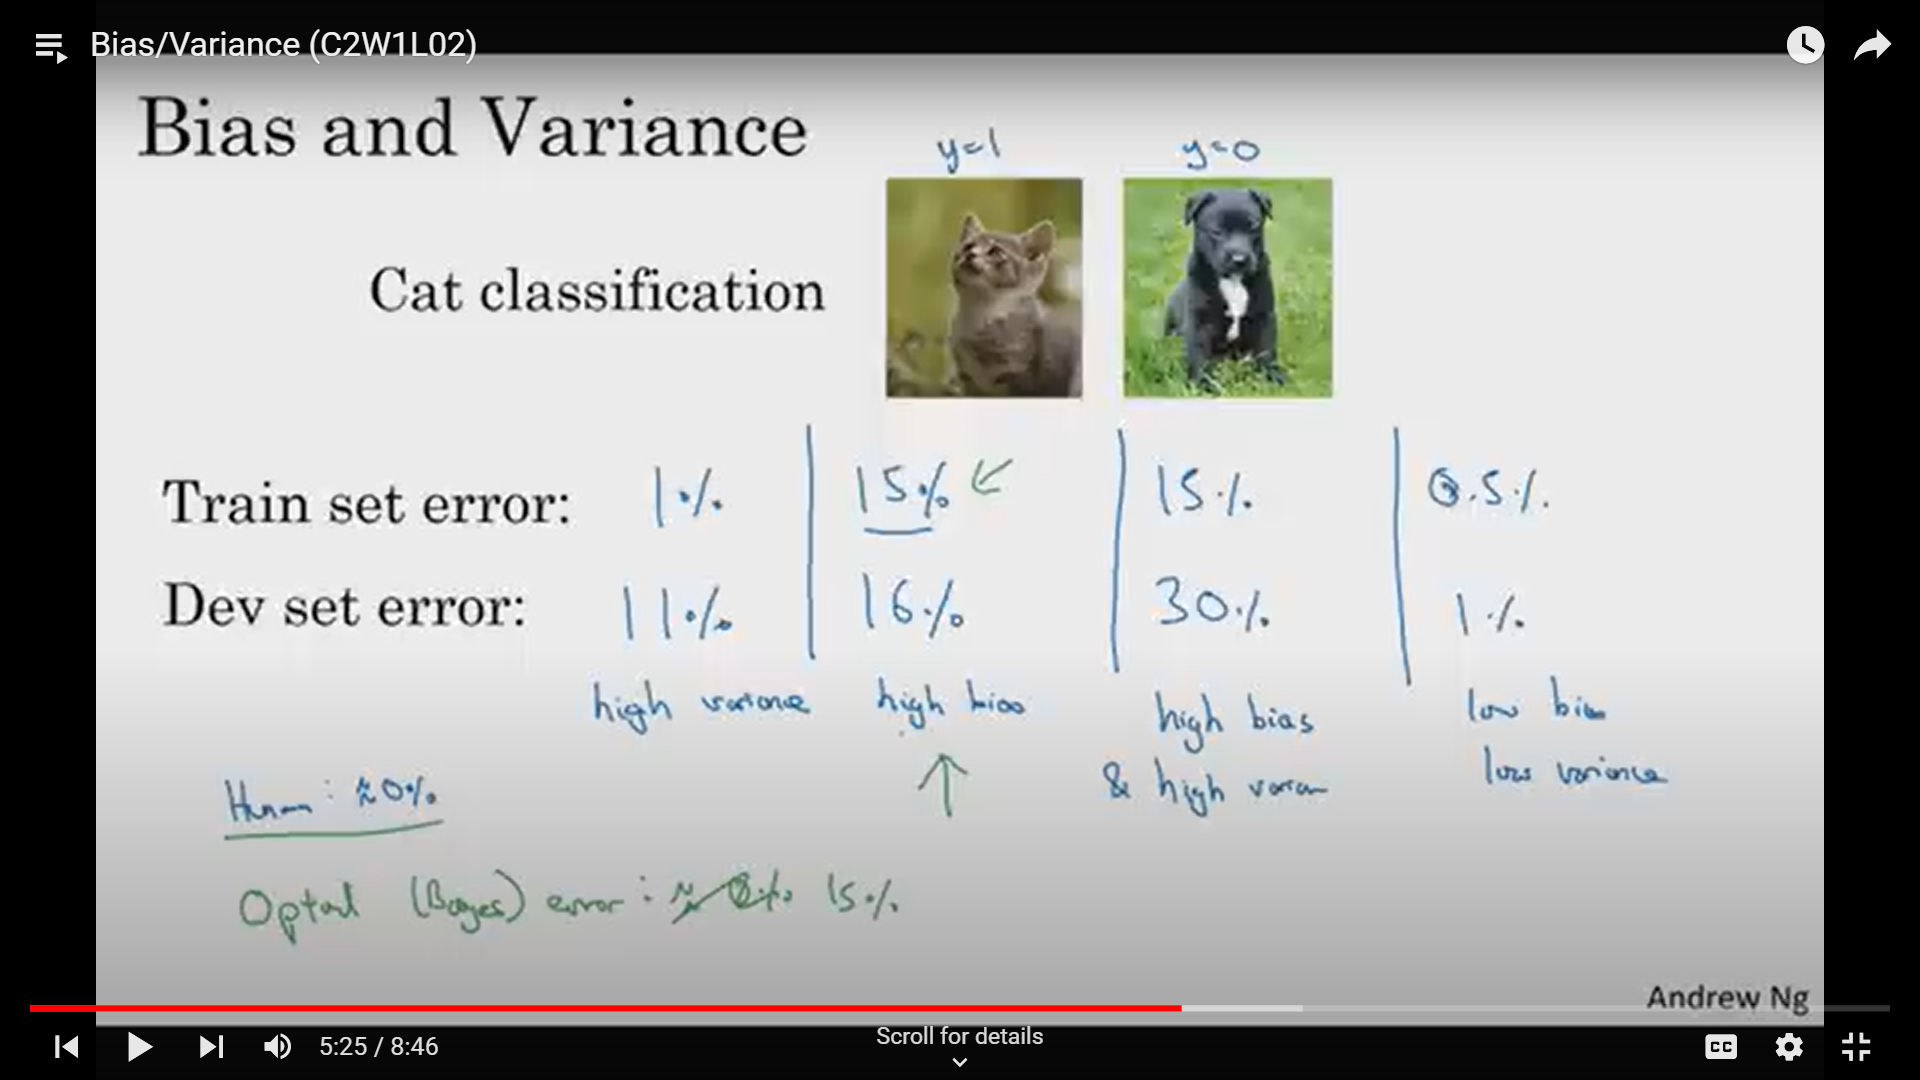 Bias/Variance (C2W1L02)
Bias and Variance
y=1 y=0
Cat classification
Train set error: 1% 15% 15% 0.5%
Dev set error: 11% 16% 30% 1%
high variance high bias high bias low bias
& high varian low variance
Human: ≈0%
Optal (Bayes) error: ≈0% 15%
Andrew Ng
5:25 / 8:46
Scroll for details
CC